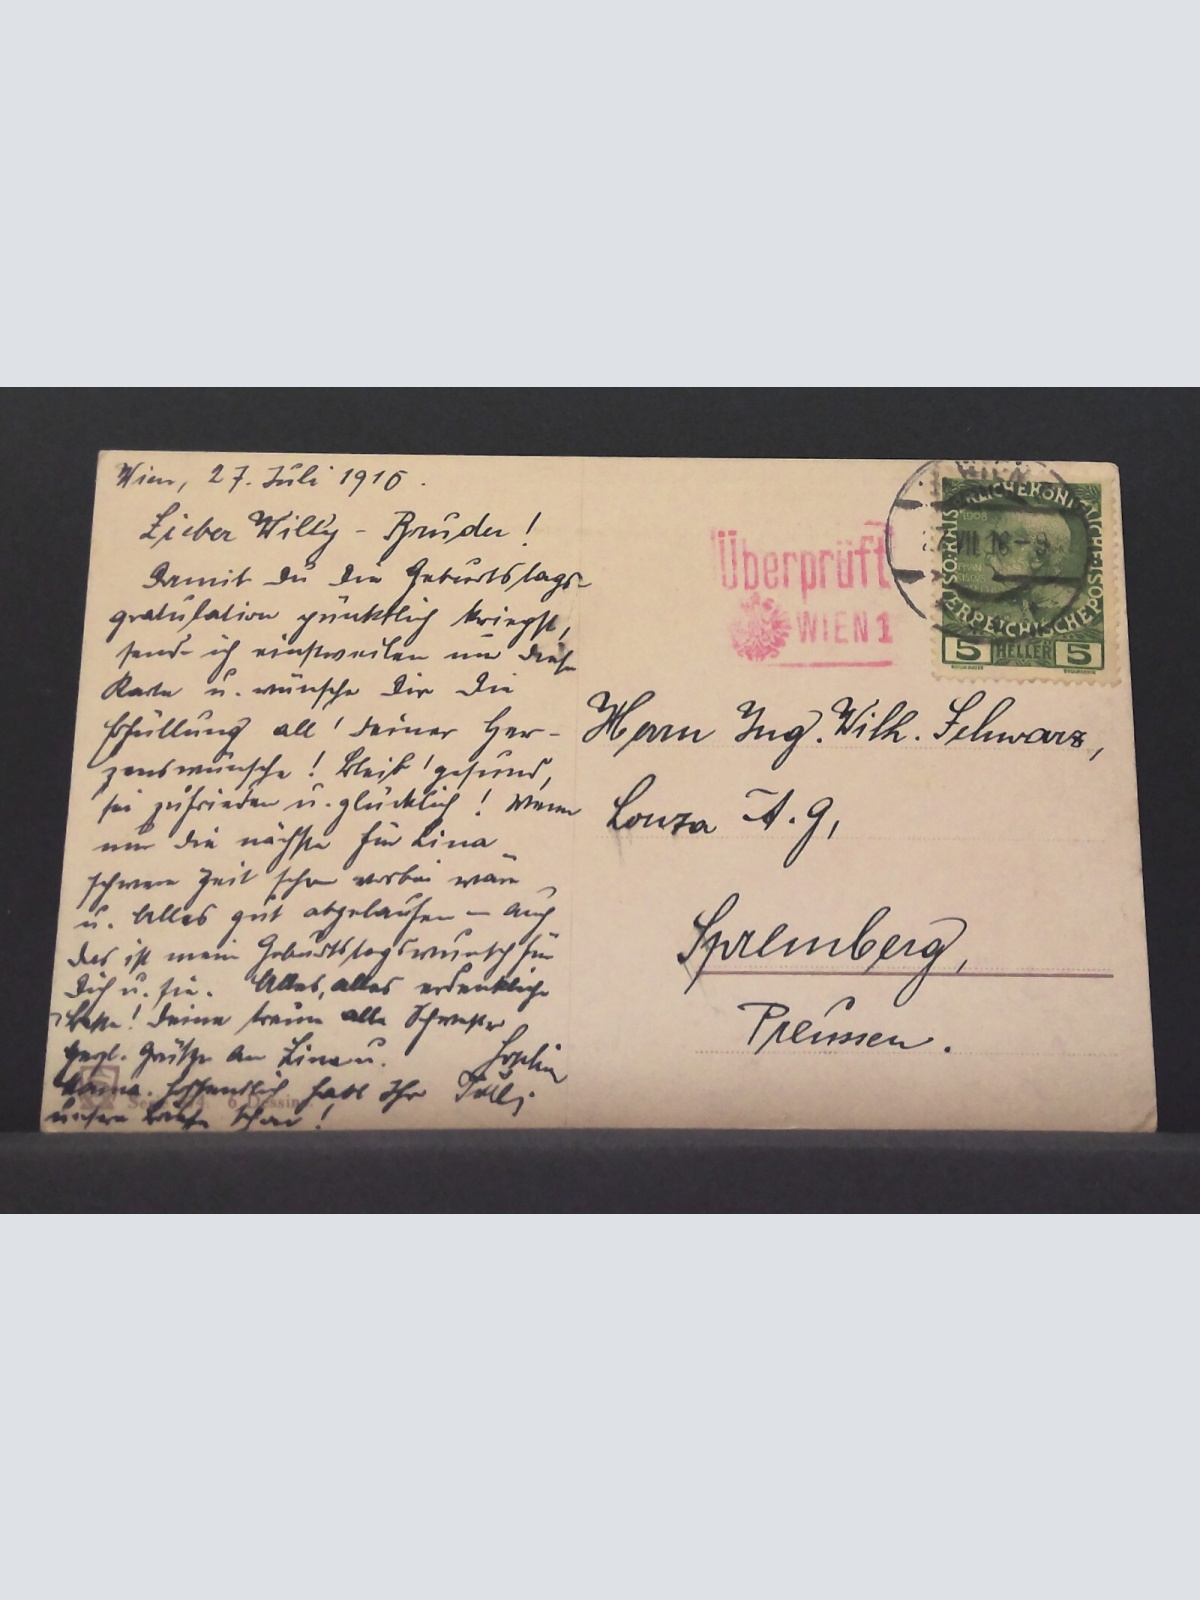 Wien, 27. Juli 1916.
Lieber Willy-Bruder!
Damit Du die Geburtstags-
gratulation pünktlich kriegst,
sende ich einstweilen nur diese
Karte u. wünsche Dir die
Erfüllung all' Deiner Her-
zenswünsche! Bleib' gesund,
sei zufrieden u. glücklich! Wenn
nur die nächste für Lina
schwere Zeit schon vorbei wäre
u. Alles gut abgelaufen – auch
das ist mein Geburtstagswunsch für
Dich u. sie. Alles, alles erdenklich
Beste! Deine treue alte Schwester
Herzl. Grüsse an Lina u. Sophie
Mama. Hoffentlich habt Ihr
unsere Briefe schon!
Überprüft
WIEN 1
5 HELLER 5
1908
VII 16-9
Herrn Ing. Wilh. Schwarz,
Lonza A.G,
Spremberg,
Preussen.